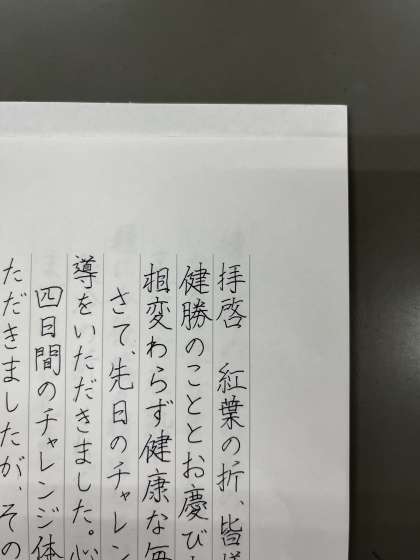 拝啓　紅葉の折、皆様
健勝のこととお慶び
相変わらず健康な毎
さて、先日のチャレン
導をいただきました。心
四日間のチャレンジ体
ただきましたが、その